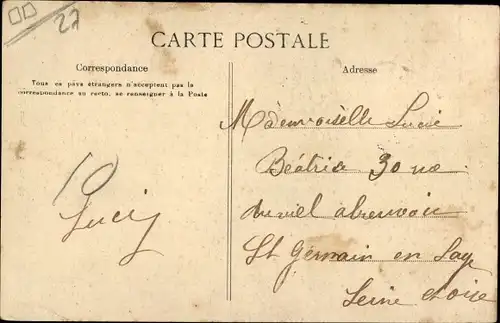 27
CARTE POSTALE
Correspondance
Tous ces pays étrangers n'acceptent pas la
correspondance au recto, se renseigner à la Poste
10
Lucy
Adresse
Mademoiselle Lucie
Béatrix 30 rue
du viel abreuvoir
St Germain en Laye
Seine et oise